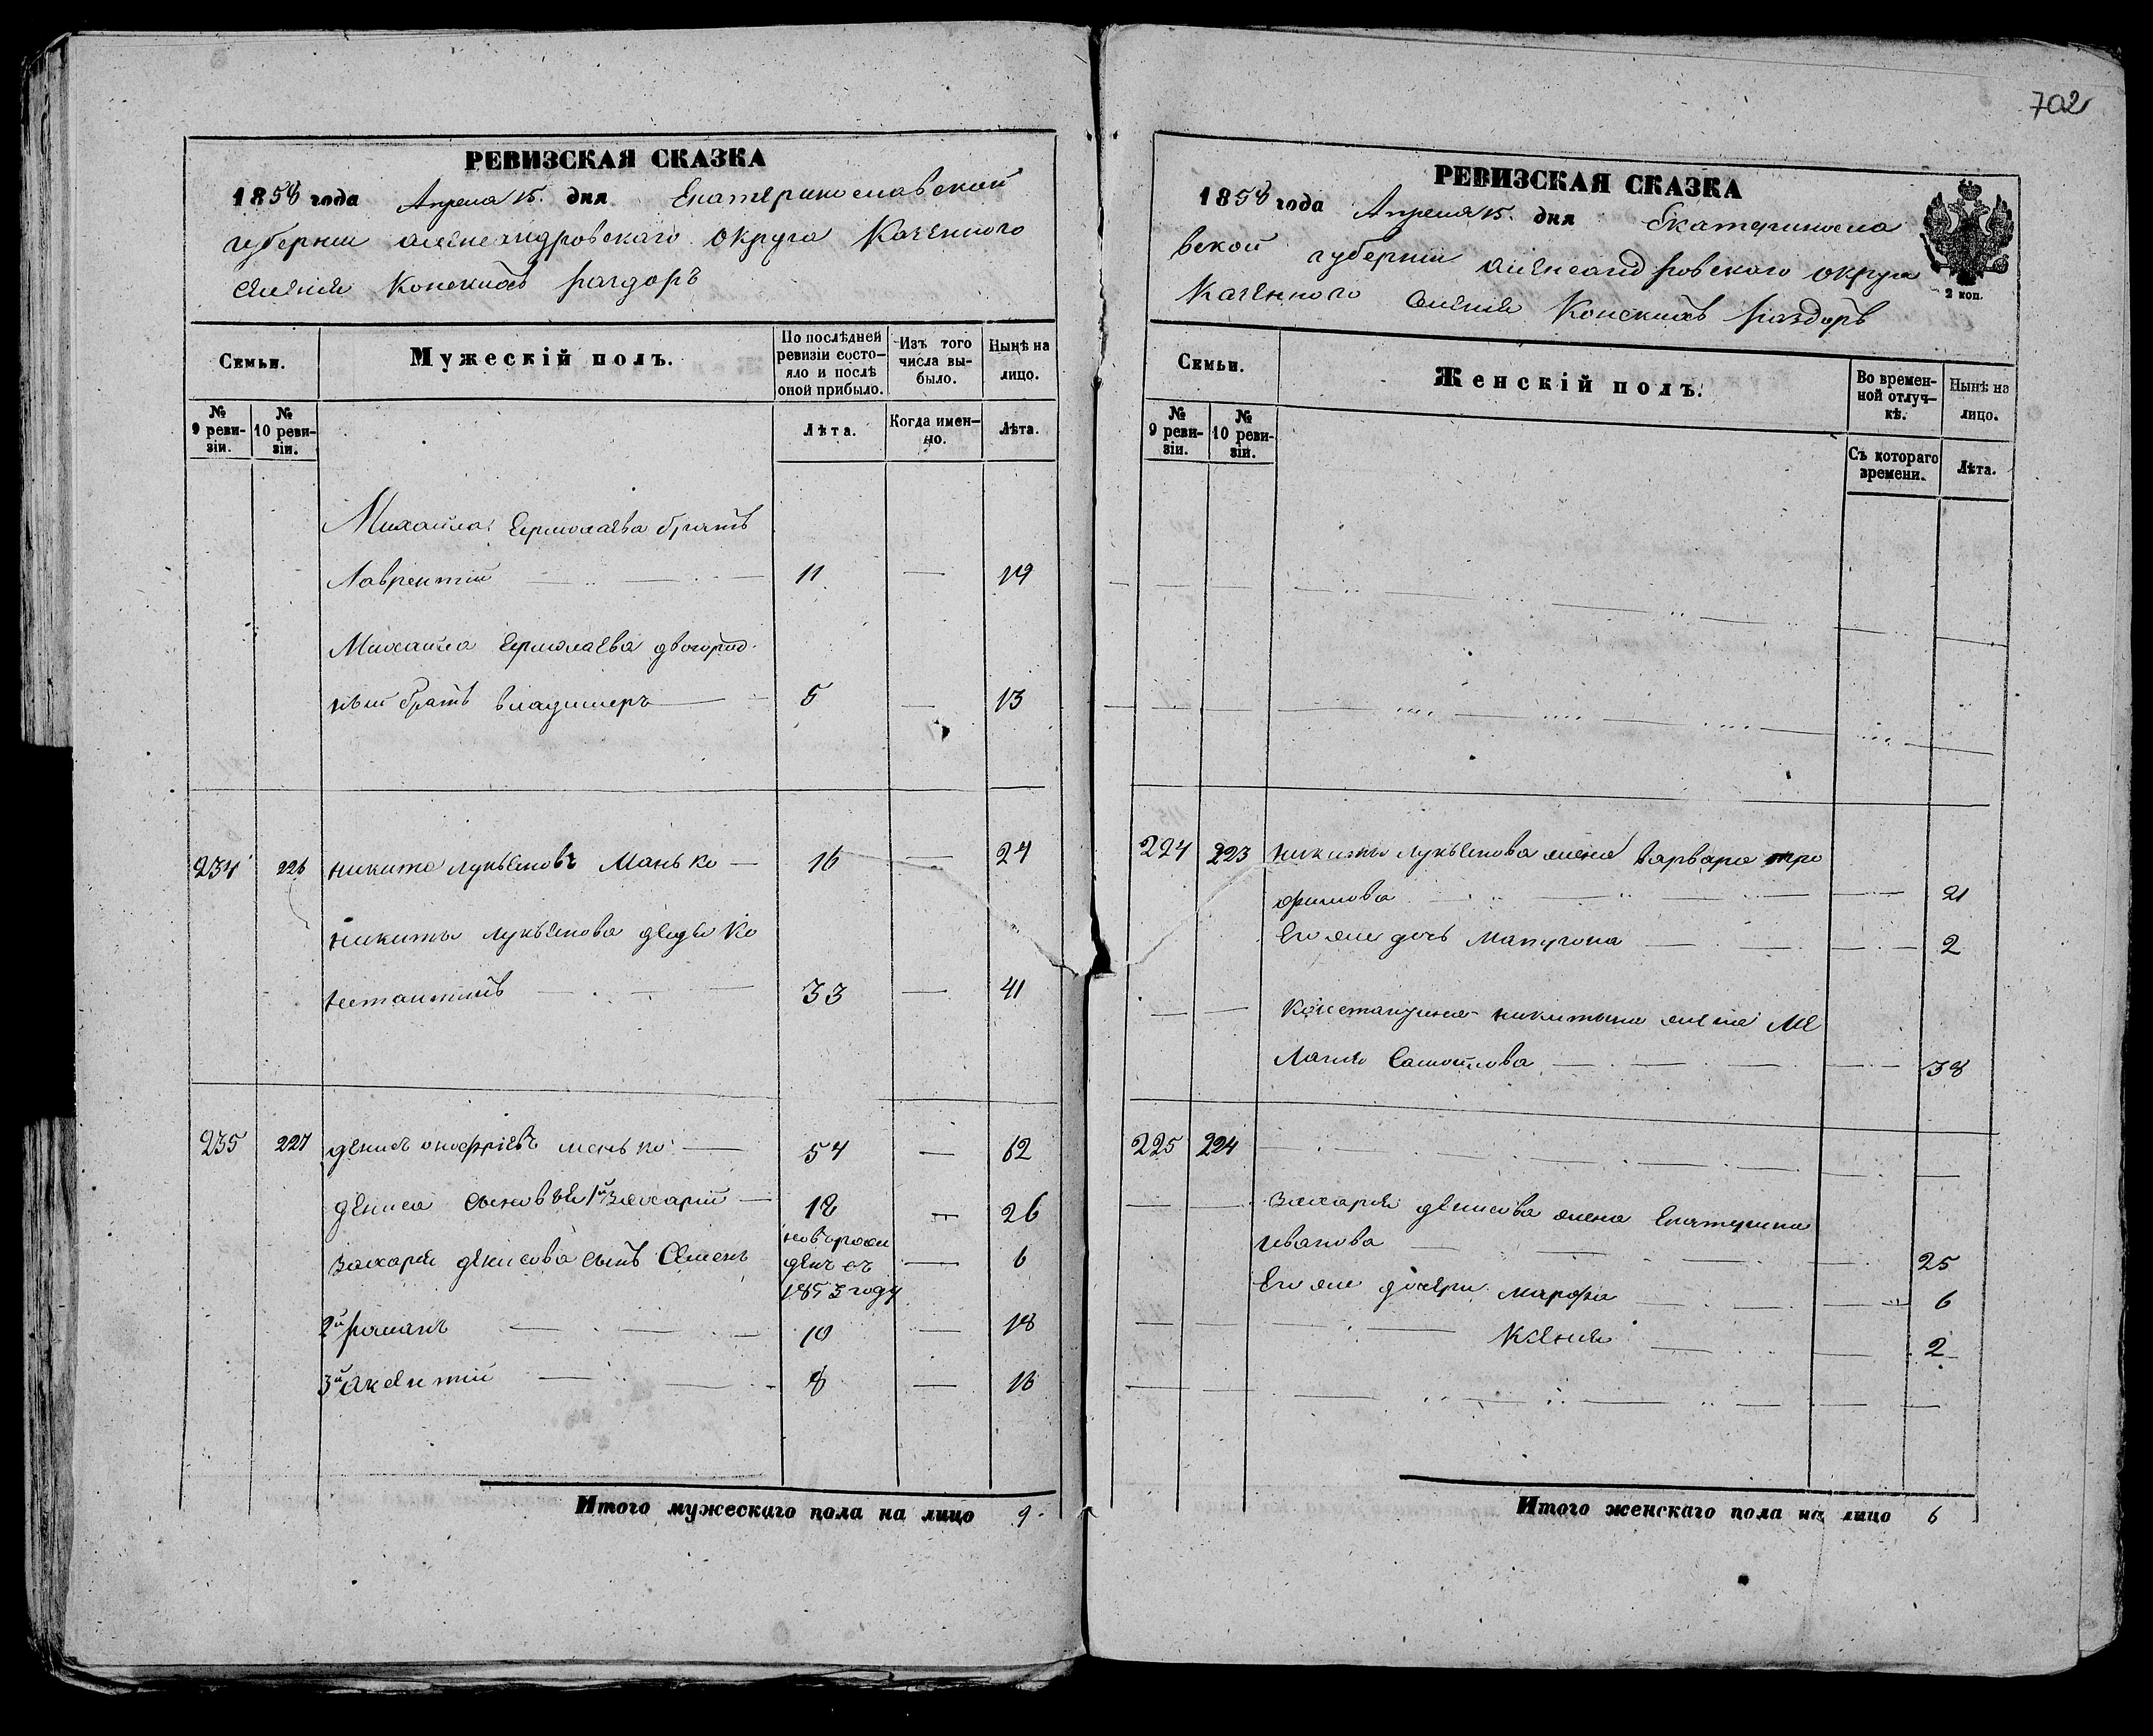 702
РЕВИЗСКАЯ СКАЗКА
1858 года Апреля 15. дня Екатеринославской
губернии александровскаго округа Казенного
селения Конскихъ раздоръ
Семьи.
Мужескій полъ.
По послѣдней ревизіи состояло и послѣ оной прибыло.
Изъ того числа выбыло.
Нынѣ на лицо.
№ 9 ревизіи.
№ 10 ревизіи.
Лѣта.
Когда именно.
Лѣта.
Михайла Ермолаева братъ
Лаврентий 11 — 19
Михайла Ермолаева двоюрод
ный братъ владимеръ 5 — 13
234 226 никита лукьяновъ Манько — 16 — 24
никиты лукьянова дядя Ко
нстантинъ 33 — 41
235 227 денисъ онофріевъ менько — 54 — 62
дениса сыновья 1й Захарий — 18 — 26
Захария денисова сынъ Семенъ новорож денъ съ 1853 году — 6
2й романъ 10 — 18
3й Аксентий 8 — 16
Итого мужескаго пола на лицо 9
РЕВИЗСКАЯ СКАЗКА
1858 года Апреля 15. дня Екатериносла
вской губернии александровского округа
Казенного селения Конскихъ раздоръ
2 коп.
Семьи.
Женскій полъ.
Во временной отлучкѣ.
Нынѣ на лицо.
№ 9 ревизіи.
№ 10 ревизіи.
Съ котораго времени.
Лѣта.
224 223 никиты лукьянова жена варвара тро
фимова 21
Его же дочь Матрона 2
Константина никитина жена Ме
лания Самойлова 38
225 224
Захария денисова жена Екатерина
иванова 25
Его же дочери марфа 6
Ксения 2
Итого женскаго пола на лицо 6